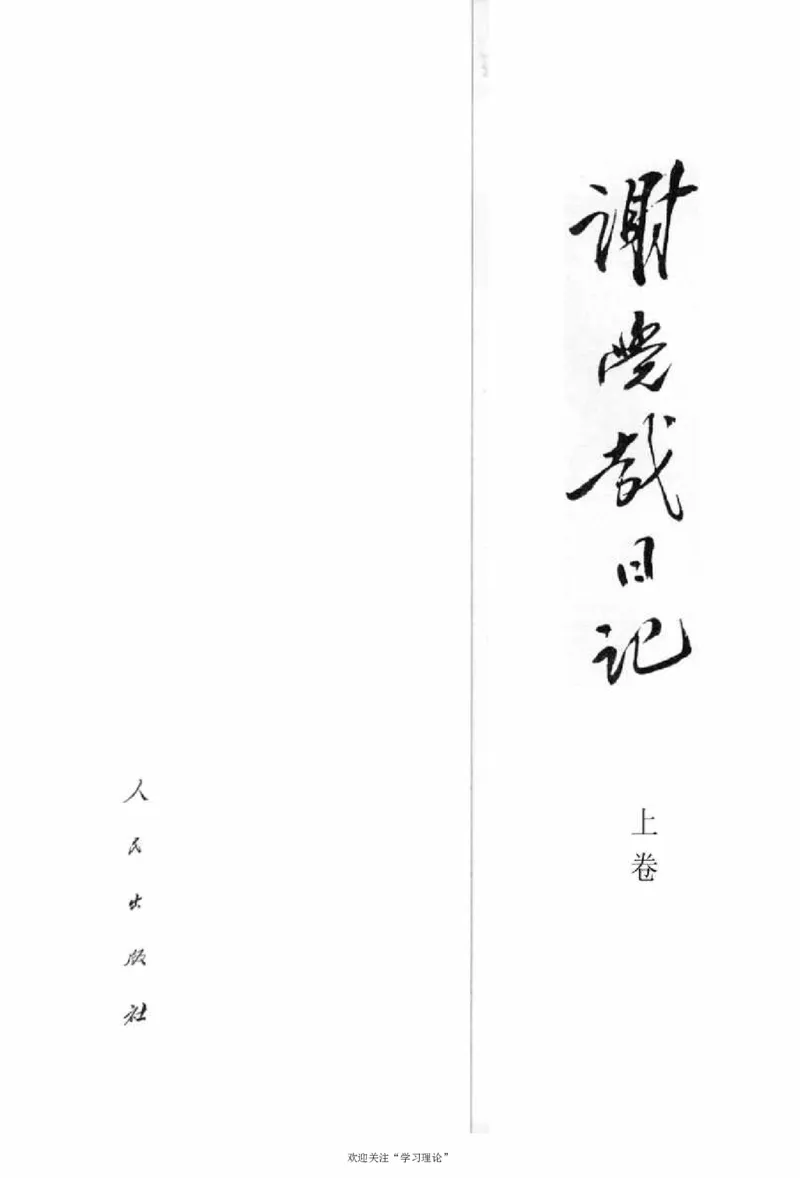 谢觉哉日记
上卷
人民出版社
欢迎关注“学习理论”